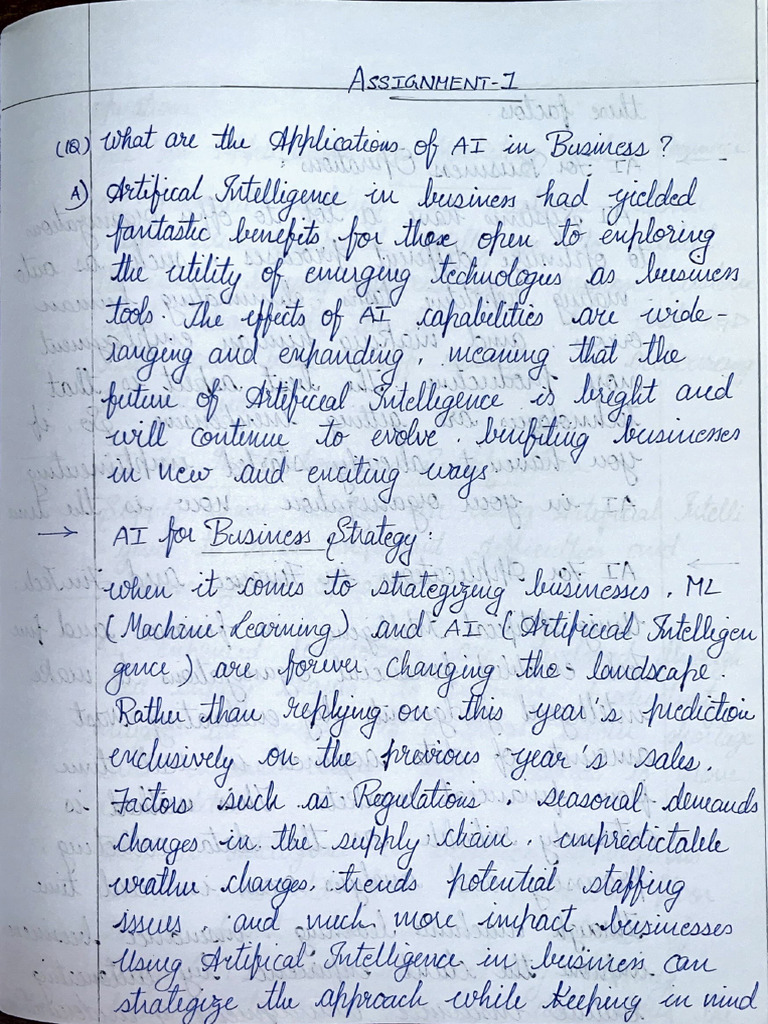 ASSIGNMENT-1
(1Q) What are the Applications of AI in Business ?
A) Artifical Intelligence in business had yielded
fantastic benefits for those open to exploring
the utility of emerging technologies as business
tools. The effects of AI capabilities are wide-
ranging and expanding, meaning that the
future of Artifical Intelligence is bright and
will continue to evolve. benifiting businesses
in new and exciting ways
→ AI for Business Strategy:
when it comes to strategizing businesses, ML
(Machine Learning) and AI (Artificial Intelligen
gence) are forever changing the landscape.
Rather than replying on this year's prediction
exclusively on the previous year's sales.
Factors such as Regulations, seasonal demands
changes in the supply chain, unpredictable
weather changes, trends potential staffing
issues and much more impact businesses
Using Artifical Intelligence in business can
strategize the approach while keeping in mind